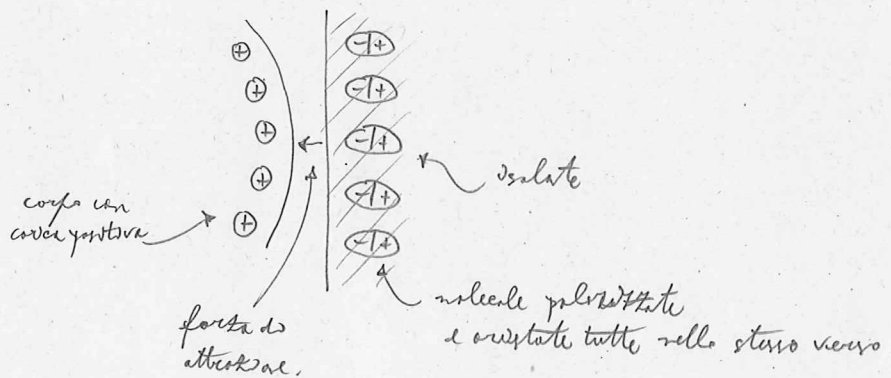 + -|+
+ -|+
+ -|+
+ -|+
+ -|+
isolate
corpo con
carica positiva
forza di
attrazione.
molecole polarizzate
e orientate tutte nello stesso verso